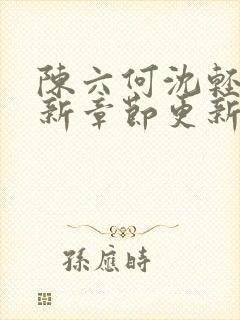 陳六何沈輕
新章節更新
孫應時